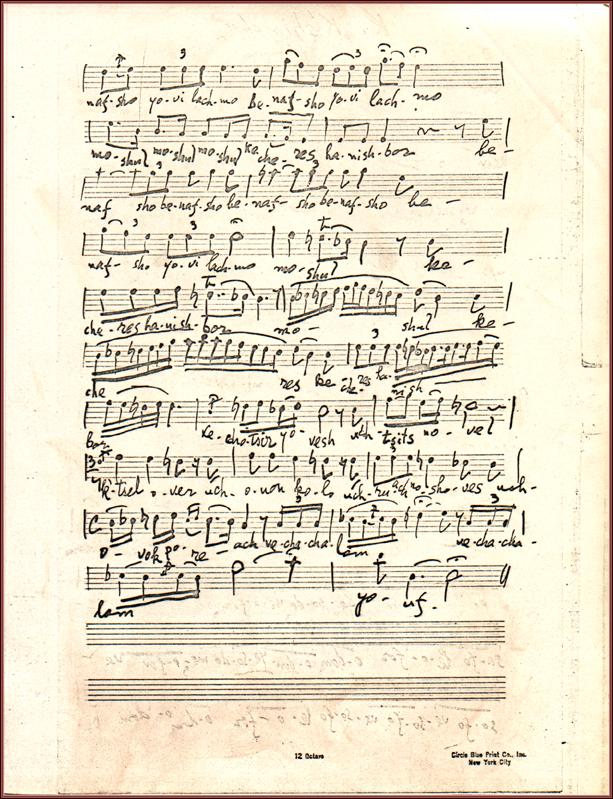 naf-sho yo-vi lach-mo be-naf-sho yo-vi lach-mo
mo-shul mo-shul mo-shul ka che-res ha-nish-bor be-
naf sho be-naf-sho be-naf-sho be-naf-sho be-
naf-sho yo-vi lach-mo mo-shul ke-
che-res ha-nish-bor mo-shul ke-
che res ke che-res ha-nish
bor ke-cha-tsir yo-vesh uch-tsits no-vel
k'tsel o-ver uch-o-non ko-lo uch-ru-ach no-sho-ves uch-
o-vok po-re-ach ve-cha-cha-lom ve-cha-cha-
lom yo-uf.
12 Octavo
Circle Blue Print Co., Inc.
New York City